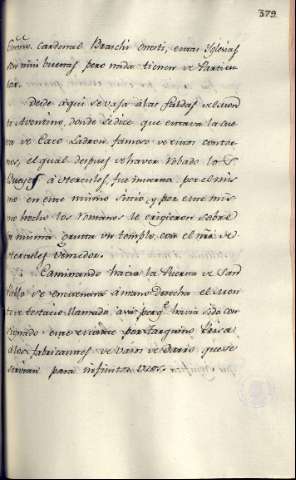 379
Cardenal Braschi Onesti, estas Yglesias
son mui buenas pero nada tienen de Particu
lar.
Desde aqui se va a las faldas del mon
te Aventino, donde se dice que estava la cue
va de Caco Ladron famoso de otros contor
nos, el qual despues de haver robado los
Bueyes a Hercules, fue muerto por el mis
mo en este mismo sitio, y por este mis
mo hecho los Romanos le erigieron sobre
la misma gruta un templo, con el de
Hercules Vencedor.
Caminando hacia la Puerta de San
Pablo se encuentra a mano derecha el Mon
te testaceo llamado assi porq havia sido con
signado este parage por Tarquino Prisco
a los fabricantes de vasos de barro, que se
servian para infinitos usos.